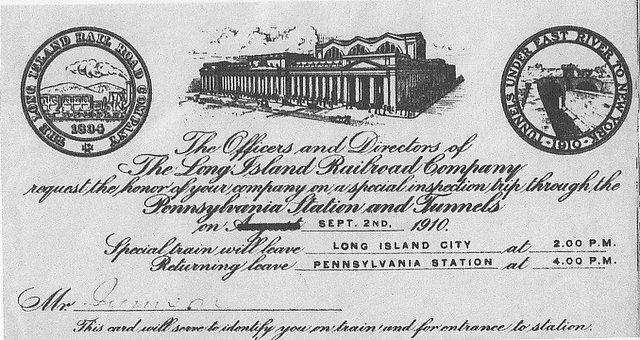 THE LONG ISLAND RAIL ROAD COMPANY
1834
TUNNELS UNDER EAST RIVER TO NEW YORK
-1910-
The Officers and Directors of
The Long Island Railroad Company
request the honor of your company on a special inspection trip through the
Pennsylvania Station and Tunnels
on August SEPT. 2ND, 1910.
Special train will leave LONG ISLAND CITY at 2.00 P.M.
Returning leave PENNSYLVANIA STATION at 4.00 P.M.
Mr.
This card will serve to identify you on train and for entrance to station.